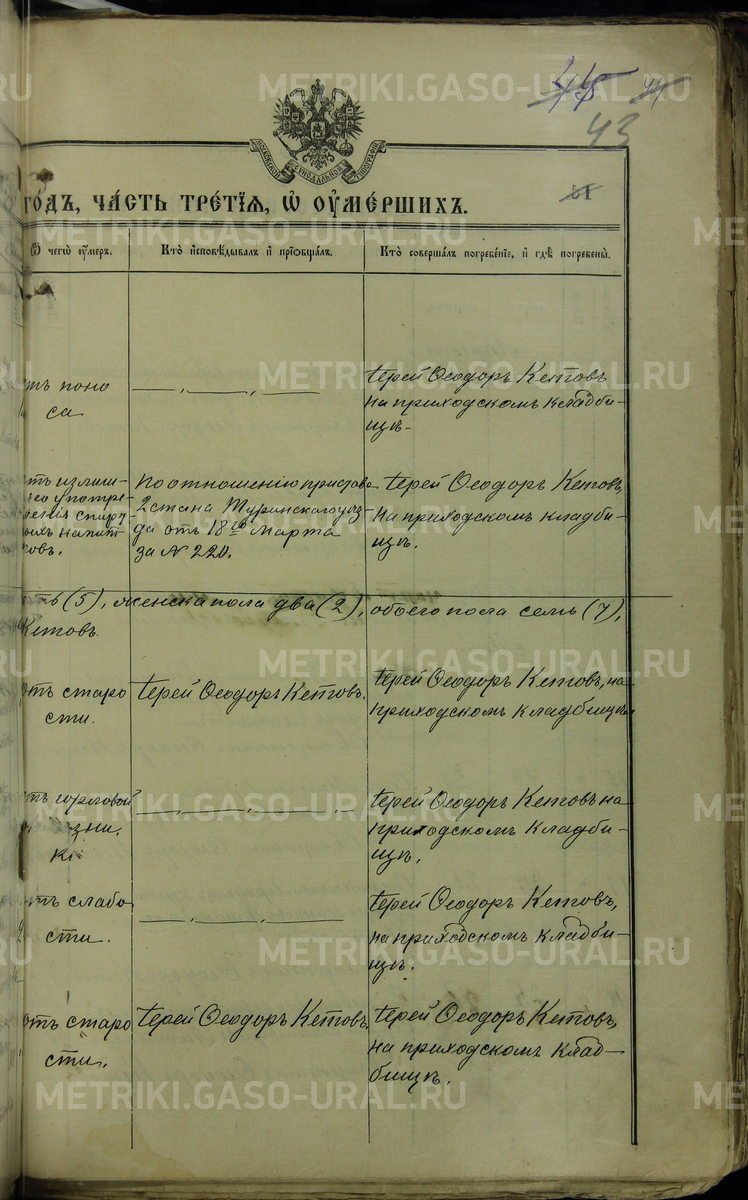 45 41
43
МОСКОВСКОЙ СѴНОДАЛЬНОЙ ТИПОГРАФІИ
го́дъ, ча́сть тре́тїѧ, ѡ҆ ᲂу҆ме́ршихъ.
Ѿ чегѡ̀ ᲂу҆́меръ.
Кто̀ и҆сповѣ́дывалъ и҆ прїѡбща́лъ.
Кто̀ соверша́лъ погребе́нїе, и҆ гдѣ̀ погребены̀.
тъ поно
са
Іерей Ѳеодоръ Кетовъ
на приходскомъ кладби-
щѣ.
тъ излиш-
го употре
бенія спирт
ыхъ напит
ковъ.
По отношенію пристава
2 стана Туринскаго уѣз-
да отъ 18го марта
за № 220.
Іерей Ѳеодоръ Кетовъ,
на приходскомъ кладби-
щѣ.
ть (5), женска пола два (2), обоего пола семь (7),
Кетовъ.
отъ старо
сти.
Іерей Ѳеодоръ Кетовъ.
Іерей Ѳеодоръ Кетовъ, на
приходскомъ кладбищѣ.
тъ горловой
Іерей Ѳеодоръ Кетовъ на
приходскомъ кладби-
щѣ.
тъ слабо
сти.
Іерей Ѳеодоръ Кетовъ,
на приходскомъ кладби-
щѣ.
отъ старо
сти.
Іерей Ѳеодоръ Кетовъ,
Іерей Ѳеодоръ Кетовъ,
на приходскомъ клад-
бищѣ.
METRIKI.GASO-URAL.RU